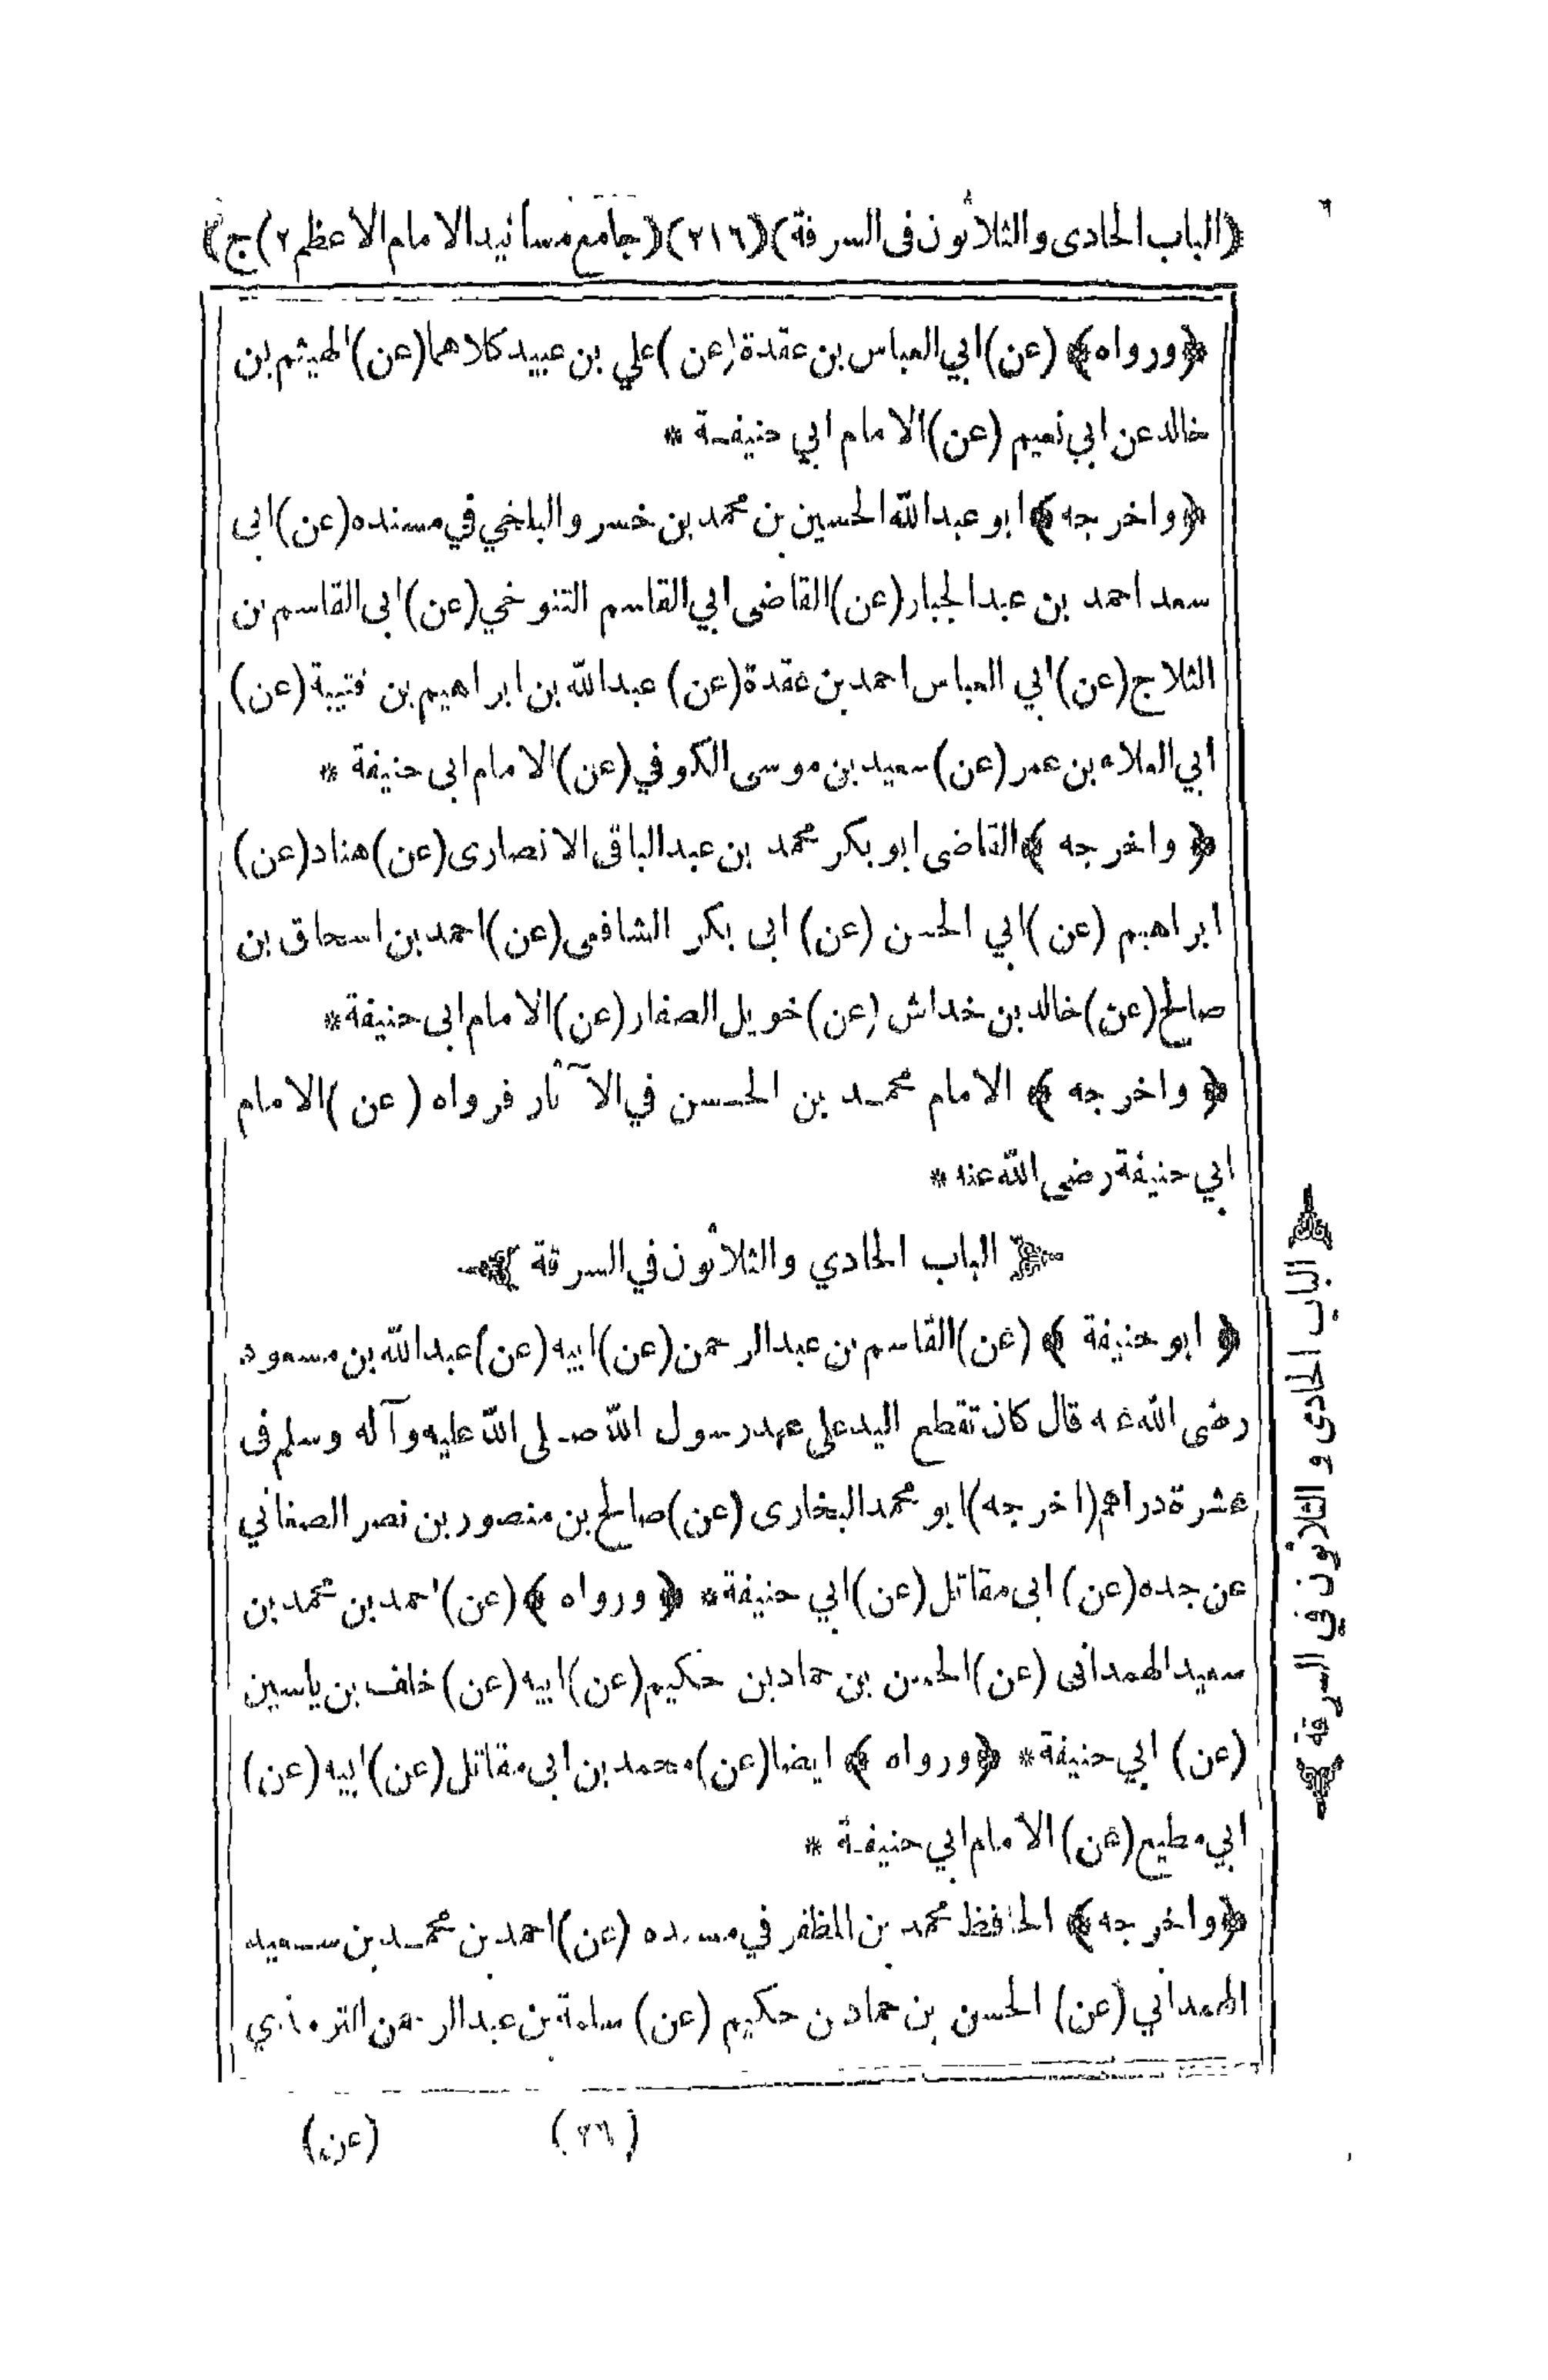 ﴿الباب الحادى والثلاثون فى السرقة﴾(٢١٦)(جامع مسانيد الامام الاعظم ٢)ج﴾
﴿ورواه﴾ (عن)ابي العباس بن عقدة (عن )علي بن عبيد كلاهما(عن)الهيثم بن
خالد عن ابي نعيم (عن)الامام ابي حنيفة *
﴿واخرجه﴾ابو عبدالله الحسين بن محمد بن خسرو البلخي في مسنده(عن)ابى
سعد احمد بن عبدالجبار(عن)القاضى ابي القاسم التنوخي(عن)ابى القاسم بن
الثلاج(عن)ابي العباس احمد بن عقدة(عن) عبدالله بن ابراهيم بن قتيبة(عن)
ابي العلاء بن عمر(عن)سعيد بن موسى الكوفي(عن)الامام ابى حنيفة *
﴿ واخرجه ﴾القاضى ابو بكر محمد بن عبدالباقى الانصارى(عن)هناد(عن)
ابراهيم (عن )ابي الحسن (عن) ابى بكر الشافعى(عن)احمد بن اسحاق بن
صالح(عن)خالد بن خداش (عن)خويل الصفار(عن)الامام ابى حنيفة*
﴿ واخرجه ﴾ الامام محمد بن الحسن في الآثار فرواه ( عن )الامام
ابي حنيفة رضى الله عنه *
﴿ الباب الحادي والثلاثون في السرقة ﴾
﴿ ابو حنيفة ﴾ (عن)القاسم بن عبدالرحمن(عن)ابيه(عن)عبدالله بن مسعود
رضى الله عنه قال كان تقطع اليد على عهد رسول الله صلى الله عليه وآله وسلم فى
عشرة دراهم(اخرجه)ابو محمد البخارى (عن)صالح بن منصور بن نصر الصغاني
عن جده(عن) ابى مقاتل(عن)ابي حنيفة* ﴿ ورواه ﴾(عن)احمد بن محمد بن
سعيد الهمدانى (عن)الحسن بن حماد بن حكيم(عن)ابيه(عن)خلف بن ياسين
(عن) ابي حنيفة* ﴿ورواه ﴾ ايضا(عن)محمد بن ابى مقاتل(عن)ابيه(عن)
ابي مطيع(عن)الامام ابي حنيفة *
﴿واخرجه﴾ الحافظ محمد بن المظفر في مسنده (عن)احمد بن محمد بن سعيد
الهمداني(عن) الحسن بن حماد بن حكيم (عن) سلمة بن عبدالرحمن الترمذي
(٢٦)
(عن)
﴿ الباب الحادى والثلاثون في السرقة ﴾